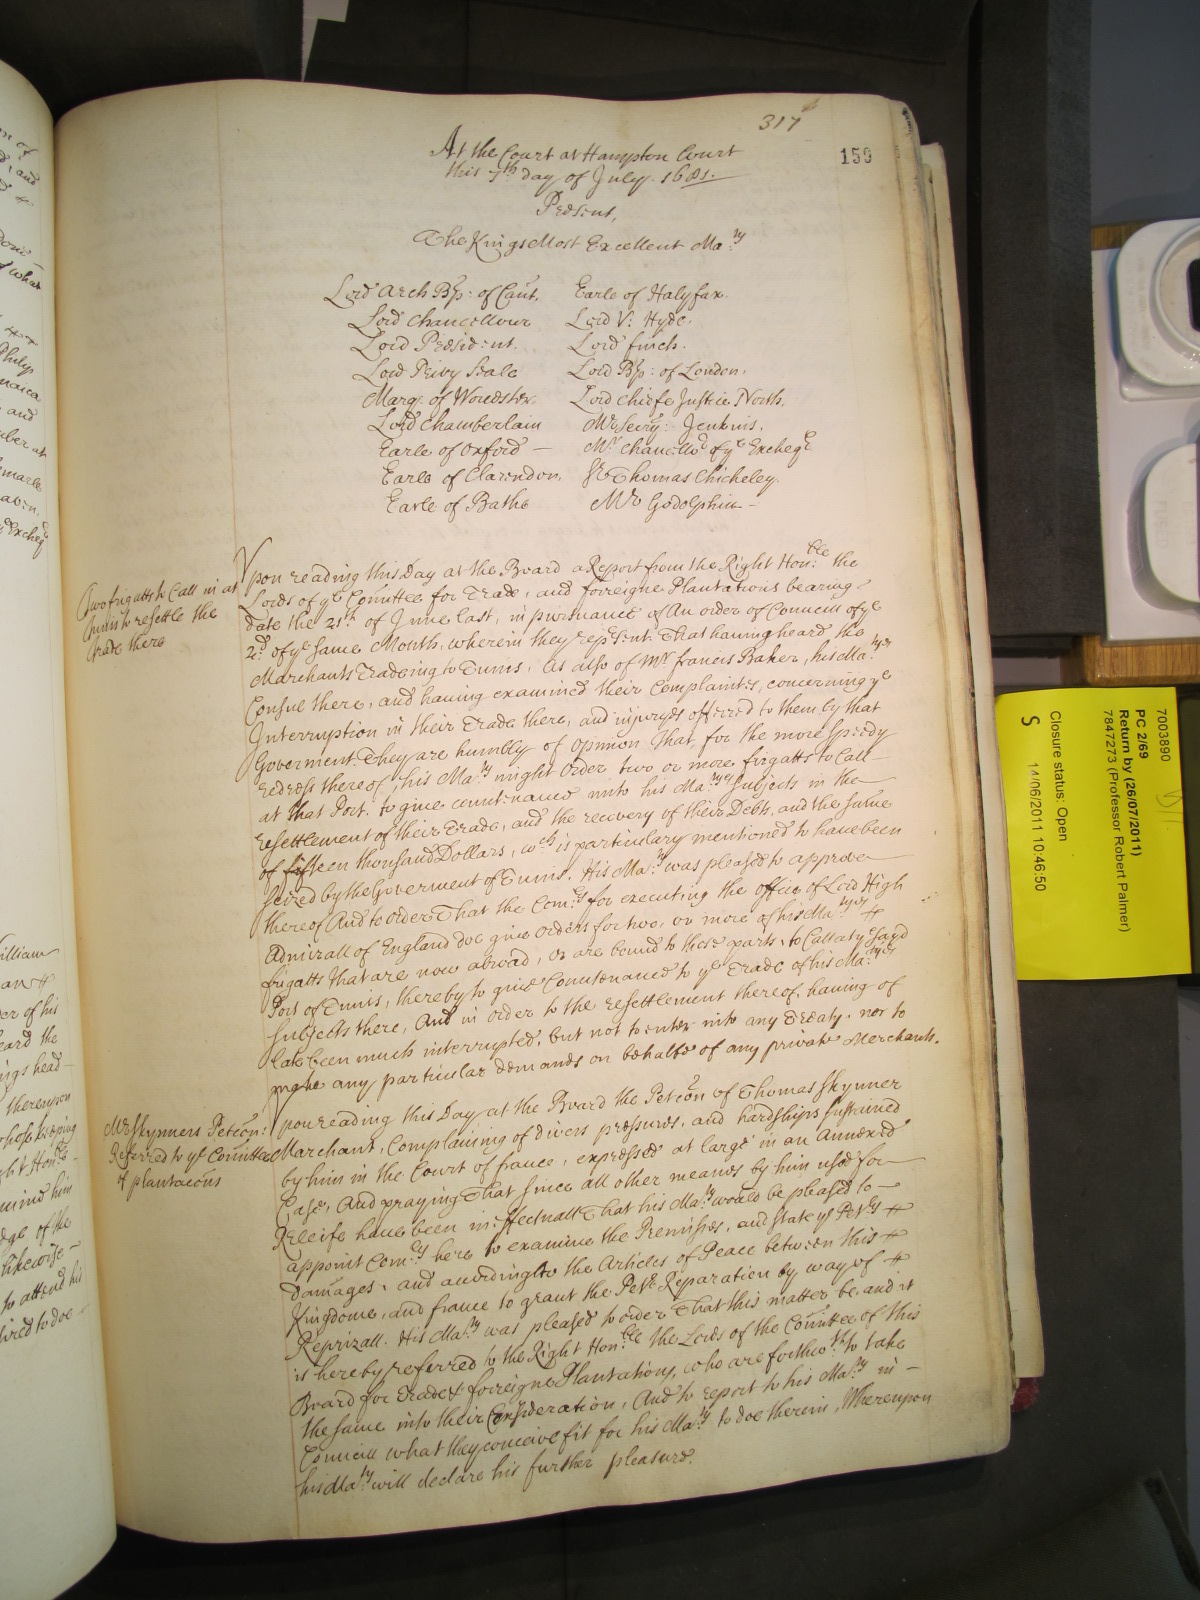 317
159
At the Court at Hampton Court
this 7th day of July. 1681.
Present,
The Kings Most Excellent Ma:ty
Lord Arch Bp: of Cant.
Lord Chancellour
Lord President.
Lord Privy Seale
Marq: of Worcester.
Lord Chamberlain
Earle of Oxford —
Earle of Clarendon.
Earle of Bathe
Earle of Halyfax.
Lord V: Hyde.
Lord finch.
Lord Bp: of London.
Lord Chiefe Justice North.
Mr Secry: Jenkins.
Mr Chancellor of ye Excheqr
Sr Thomas Chicheley.
Mr Godolphin —
Two frigatts to Call in at
Tunis to resettle the
trade there
Vpon reading this Day at the Board a Report from the Right Hon:ble the
Lords of ye Comittee for Trade, and forreigne Plantations bearing
date the 21th of June last, in pursuance of An order of Councill of ye
2d of ye same Month, wherein they represent That having heard the
Marchants Tradeing to Tunis, As also of Mr francis Baker, his Ma:tyes
Consul there, and having examined their Complaintes, concerning ye
Interruption in their Trade there, and injuryes offerred to them by that
Goverment They are humbly of opinion That, for the more speedy
redress thereof, his Ma:ty might Order two or more firgatts to Call
at that Port. to give countenance unto his Ma:tyes Subjects in the
resettlement of their Trade, and the recovery of their Debts, and the Sume
of fifteen thousand Dollars, wch is particulary mentioned to have been
seized by the Goverment of Tunis. His Ma:ty was pleased to approve
thereof And to order That the Com:rs for executing the office of Lord High
Admirall of England doe give orders for two, or more of his Ma:tyes
frigatts that are now abroad, or are bound to those parts, to Call at ye sayd
Port of Tunis, thereby to give Countenance to ye Trade of his Ma:tyes
Subjects there, And in order to the resettlement thereof, having of
late been much interrupted, but not to enter into any Treaty, nor to
make any particular demands on behalfe of any private Merchants.
Mr Skynners Petcon:
Referred to ye Comittee
of plantacons
Vpon reading this Day at the Board the Petcon of Thomas Skynner
Marchant, Complaining of divers pressures, and hardships sustained
by him in the Court of france, expressed at large in an Annexed
Case, And praying That since all other meanes by him used for
Releife have been ineffectuall That his Ma:ty would be pleased to —
appoint Com:rs here to examine the Premisses, and state ye Pet:rs
Damages, and according to the Articles of Peace between this
Kingdome, and france to grant the Petr Reparation by way of
Reprizall. His Ma:ty was pleased to order That this matter be, and it
is hereby referred to the Right Hon:ble the Lords of the Comittee of this
Board for Trade & forreigne Plantations, who are forthwth to take
the same into their Consideration, And to report to his Ma:ty in —
Councill what they conceive fit for his Ma:ty to doe therein, Whereupon
his Ma:ty will declare his further pleasure.
7003890
PC 2/69
Return by (26/07/2011)
7847273 (Professor Robert Palmer)
Closure status: Open
S
14/06/2011 10:46:50